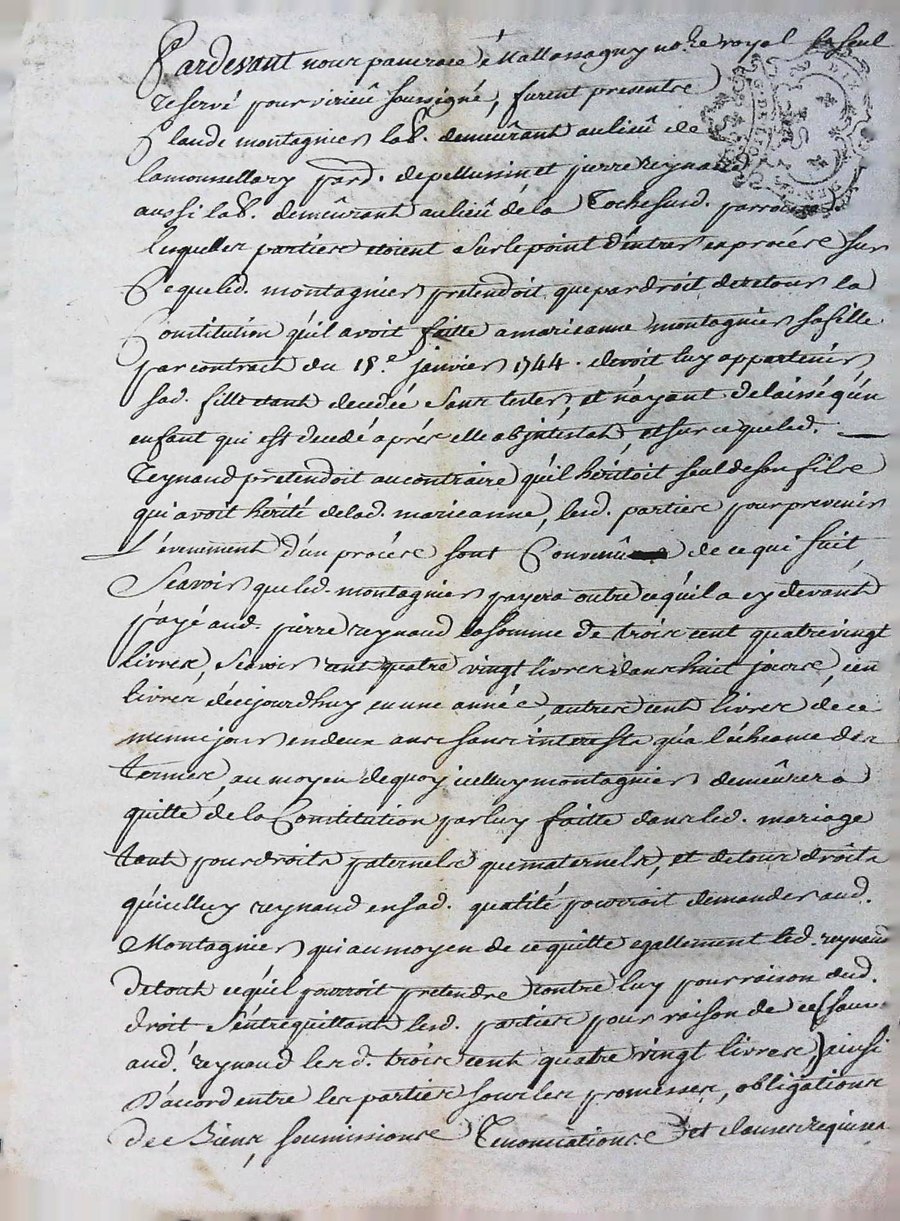 Pardevant nous pancrace Mallassagny no.re royal le seul
reservé pour virieû soussigné, furent presents
Claude montagnier lab. demeûrant au lieû de
lamousellary parr. de pelussin et pierre reynaud
aussi lab. demeûrant au lieû de la Roche susd. parroisse
lesquelles parties etoient sur le point d'entrer en procés sur
Ce que led. montagnier pretendoit que par droit de retour la
Constitution qu'il avoit faitte a marieanne montagnier sa fille
par contract du 18.e janvier 1744. devoit luy appartenir,
sad. fille étant decedée sans tester, et n'ayant delaissé qu'un
enfant qui est decedé aprés elle abjntestat, et sur ce que led.
Reynaud pretendoit au contraire qu'il héritoit seul de son fils
qui avoit hérité de lad. marieanne, lesd. parties pour prevenir
L'évenement d'un procés sont Convenûes de ce qui suit,
Scavoir que led. montagnier payera outre ce qu'il a cy devant
payé aud. pierre reynaud la somme de trois cent quatre vingt
livres, Scavoir cent quatre vingt livres dans huit jours, cen
livres, déce jourdhuy en une année, autres cent livres de ce
même jour en deux ans sans interests qu'a l'écheance des
termes, au moyen de quoy jcelluy montagnier demeûrera
quitte de la Constitution par luy faitte dans led. mariage
tant pour droits paternels que maternels, et de tous droits
qu'icelluy reynaud en sad. qualité pourroit demander aud.
Montagnier qui au moyen de ce quitte egallement led. reynaud
de tout ce qu'il pourroit pretendre contre luy pour raison dud.
droit S'entrequittant lesd. parties pour raison de ce (sauf
aud. reynaud lesd. trois cent quatre vingt livres,) ainsi
D'accord entre les parties sous les promesses, obligations
de Biens, soumissions Renonciations et clauses requises